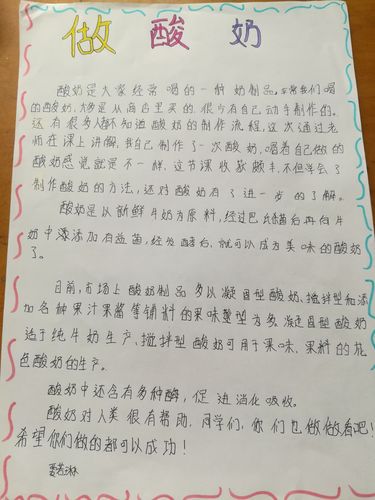 做 酸 奶
酸奶是大家经常喝的一种奶制品,平常我们喝
的酸奶,大多是从商店里买的,很少有自己动手制作的。
还有很多人都不知道酸奶的制作流程,这次通过老
师在课上讲解,我自己制作了一次酸奶,喝着自己做的
酸奶感觉就是不一样,这节课收获颇丰,不但学会了
制作酸奶的方法,还对酸奶有了进一步的了解。
酸奶是以新鲜牛奶为原料,经过巴氏杀菌后再向牛
奶中添加有益菌,经发酵后,就可以成为美味的酸奶
了。
目前,市场上酸奶制品多以凝固型酸奶、搅拌型和添
加各种果汁果酱等辅料的果味型为多。凝固型酸奶
适于纯牛奶生产、搅拌型酸奶可用于果味、果料的花
色酸奶的生产。
酸奶中还含有多种酶,促进消化吸收。
酸奶对人类很有帮助,同学们,你们也做做看吧!
希望你们做的都可以成功!